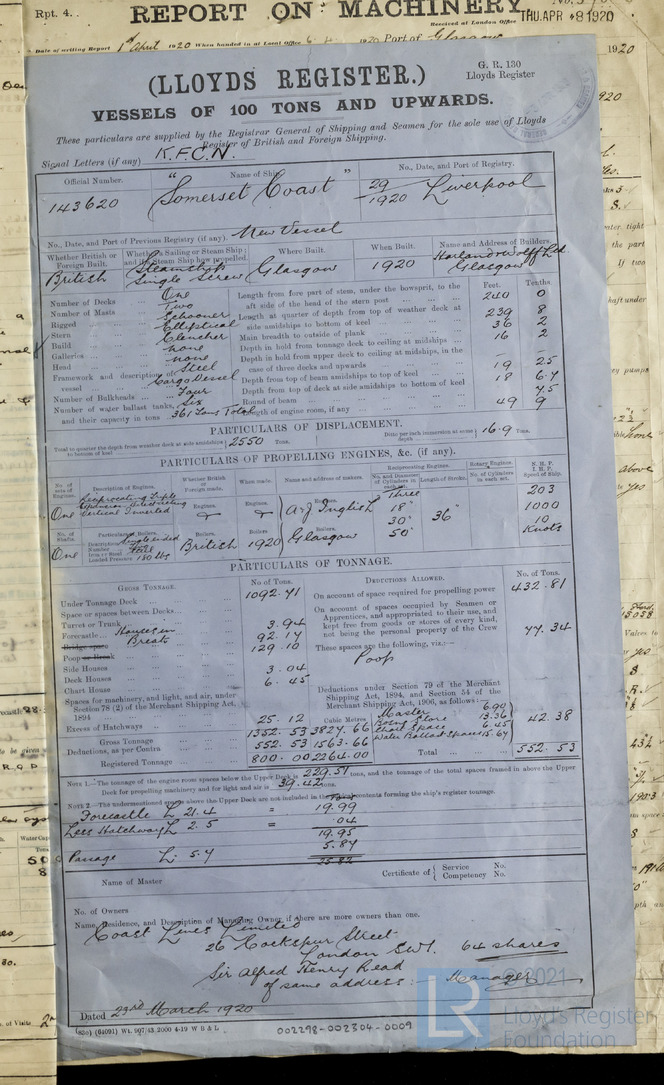 Rpt. 4.
REPORT ON MACHINERY
Received at London Office THU. APR 8 1920
Date of writing Report 1st April 1920 When handed in at Local Office 6. 4. 1920 Port of Glasgow
(LLOYDS REGISTER.)
G. R. 130
Lloyds Register
VESSELS OF 100 TONS AND UPWARDS.
These particulars are supplied by the Registrar General of Shipping and Seamen for the sole use of Lloyds
Register of British and Foreign Shipping.
Signal Letters (if any) K.F.C.N.
Official Number. Name of Ship. No., Date, and Port of Registry.
143620 "Somerset Coast" 29/1920 Liverpool
No., Date, and Port of Previous Registry (if any). New Vessel
Whether British or Foreign Built. Whether a Sailing or Steam Ship; and if a Steam Ship how propelled. Where Built. When Built. Name and Address of Builders.
British Steamship Single Screw Glasgow 1920 Harland & Wolff Ltd Glasgow
Feet. Tenths.
Number of Decks One
Number of Masts Two
Rigged Schooner
Stern Elliptical
Build Clencher
Galleries none
Head none
Framework and description of vessel Steel Cargo Vessel
Number of Bulkheads Four
Number of water ballast tanks, and their capacity in tons Six 361 Tons Total
Length from fore part of stem, under the bowsprit, to the aft side of the head of the stern post 240 0
Length at quarter of depth from top of weather deck at side amidships to bottom of keel 239 8
Main breadth to outside of plank 36 2
Depth in hold from tonnage deck to ceiling at midships 16 2
Depth in hold from upper deck to ceiling at midships, in the case of three decks and upwards —
Depth from top of beam amidships to top of keel 19 25
Depth from top of deck at side amidships to bottom of keel 18 67
Round of beam 75
Length of engine room, if any 49 9
PARTICULARS OF DISPLACEMENT.
Total to quarter the depth from weather deck at side amidships to bottom of keel 2550 Tons. Ditto per inch immersion at same depth 16.9 Tons.
PARTICULARS OF PROPELLING ENGINES, &c. (if any).
No. of sets of Engines. Description of Engines. Whether British or Foreign made. When made. Name and address of makers. Reciprocating Engines. No. and Diameter of Cylinders in each set. Length of Stroke. Rotary Engines. No. of Cylinders in each set. N. H. P. I. H. P. Speed of Ship.
One Reciprocating Triple Expansion Direct Acting Vertical Inverted
Engines. Engines. Engines.
A & J Inglis Glasgow
Three 18" 30" 50" 36"
203
1000
10 Knots
No. of Shafts. Particulars of Boilers. Boilers Boilers Boilers
One
Description Single ended
Number
Iron or Steel Steel
Loaded Pressure 180 lbs
British 1920
PARTICULARS OF TONNAGE.
GROSS TONNAGE. No. of Tons. DEDUCTIONS ALLOWED. No. of Tons.
Under Tonnage Deck 1092.71
Space or spaces between Decks
Turret or Trunk 3.94
Forecastle Houses in 92.17
Bridge space Break 129.10
Poop or Break
Side Houses 3.04
Deck Houses 6.45
Chart House
Spaces for machinery, and light, and air, under Section 78 (2) of the Merchant Shipping Act, 1894
Excess of Hatchways 25.12
Cubic Metres.
Gross Tonnage 1352.53 3827.66
Deductions, as per Contra 552.53 1563.66
Registered Tonnage 800.00 2264.00
On account of space required for propelling power 432.81
On account of spaces occupied by Seamen or Apprentices, and appropriated to their use, and kept free from goods or stores of every kind, not being the personal property of the Crew 77.34
These spaces are the following, viz.:—
Poop
Deductions under Section 79 of the Merchant Shipping Act, 1894, and Section 54 of the Merchant Shipping Act, 1906, as follows:
Master 6.90
Bosns Store 13.36
Chart Space 6.45
Water Ballast Spaces 15.67
42.38
Total 552.53
NOTE 1.—The tonnage of the engine room spaces below the Upper Deck is 229.57 tons, and the tonnage of the total spaces framed in above the Upper Deck for propelling machinery and for light and air is 39.42 tons.
NOTE 2.—The undermentioned spaces above the Upper Deck are not included in the contents forming the ship's register tonnage.
Forecastle L 21.4 = 19.99
Less Hatchway L 2.5 = .04
19.95
Passage L. 5.7 5.87
25.82
Name of Master Certificate of { Service No. Competency No.
No. of Owners
Name, Residence, and Description of Managing Owner, if there are more owners than one.
Coast Lines Limited
26 Cockspur Street
London SW1. 64 shares
Sir Alfred Henry Read
of same address: Manager
Dated 23rd March 1920
(820) (64091) Wt. 907/43 2000 4-19 W B & L
002298-002304-0009
LR
© 2021
Lloyd's Register
Foundation